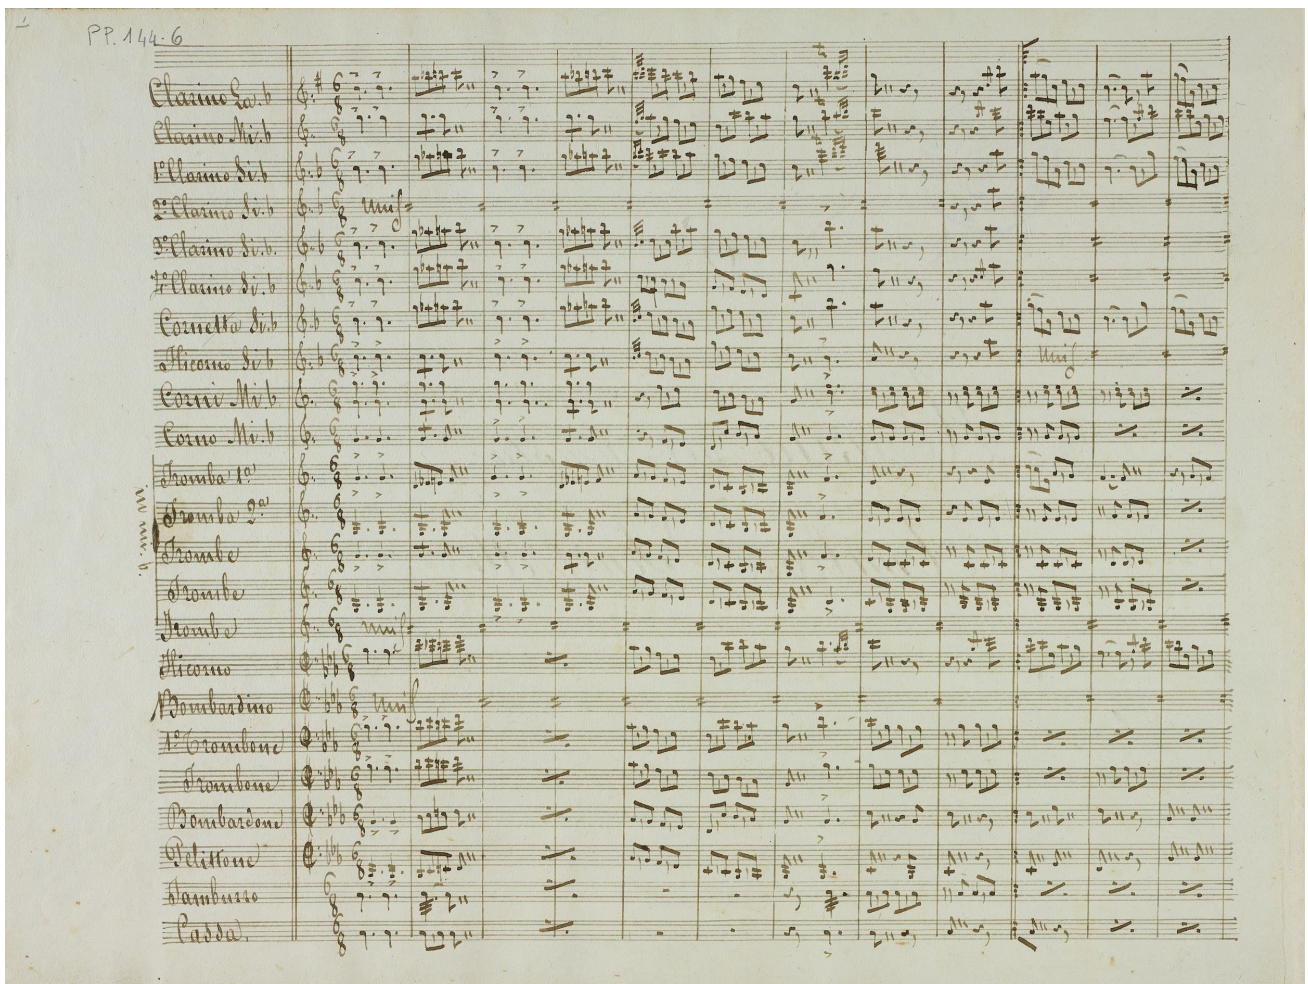 1
PP. 144-6
Clarino La.b
Clarino Mi.b
1º Clarino Si.b
2º Clarino Si.b Unis
3º Clarino Si.b.
4º Clarino Si.b
Cornetta Si.b
Flicorno Si.b Unis
Corni Mi.b
Corno Mi.b
Tromba 1ª
Tromba 2ª
in mi.b.
Trombe
Trombe
Trombe Unis
Flicorno
Bombardino Unis
1º Trombone
Trombone
Bombardone
Pelittone
Tamburro
Cassa.